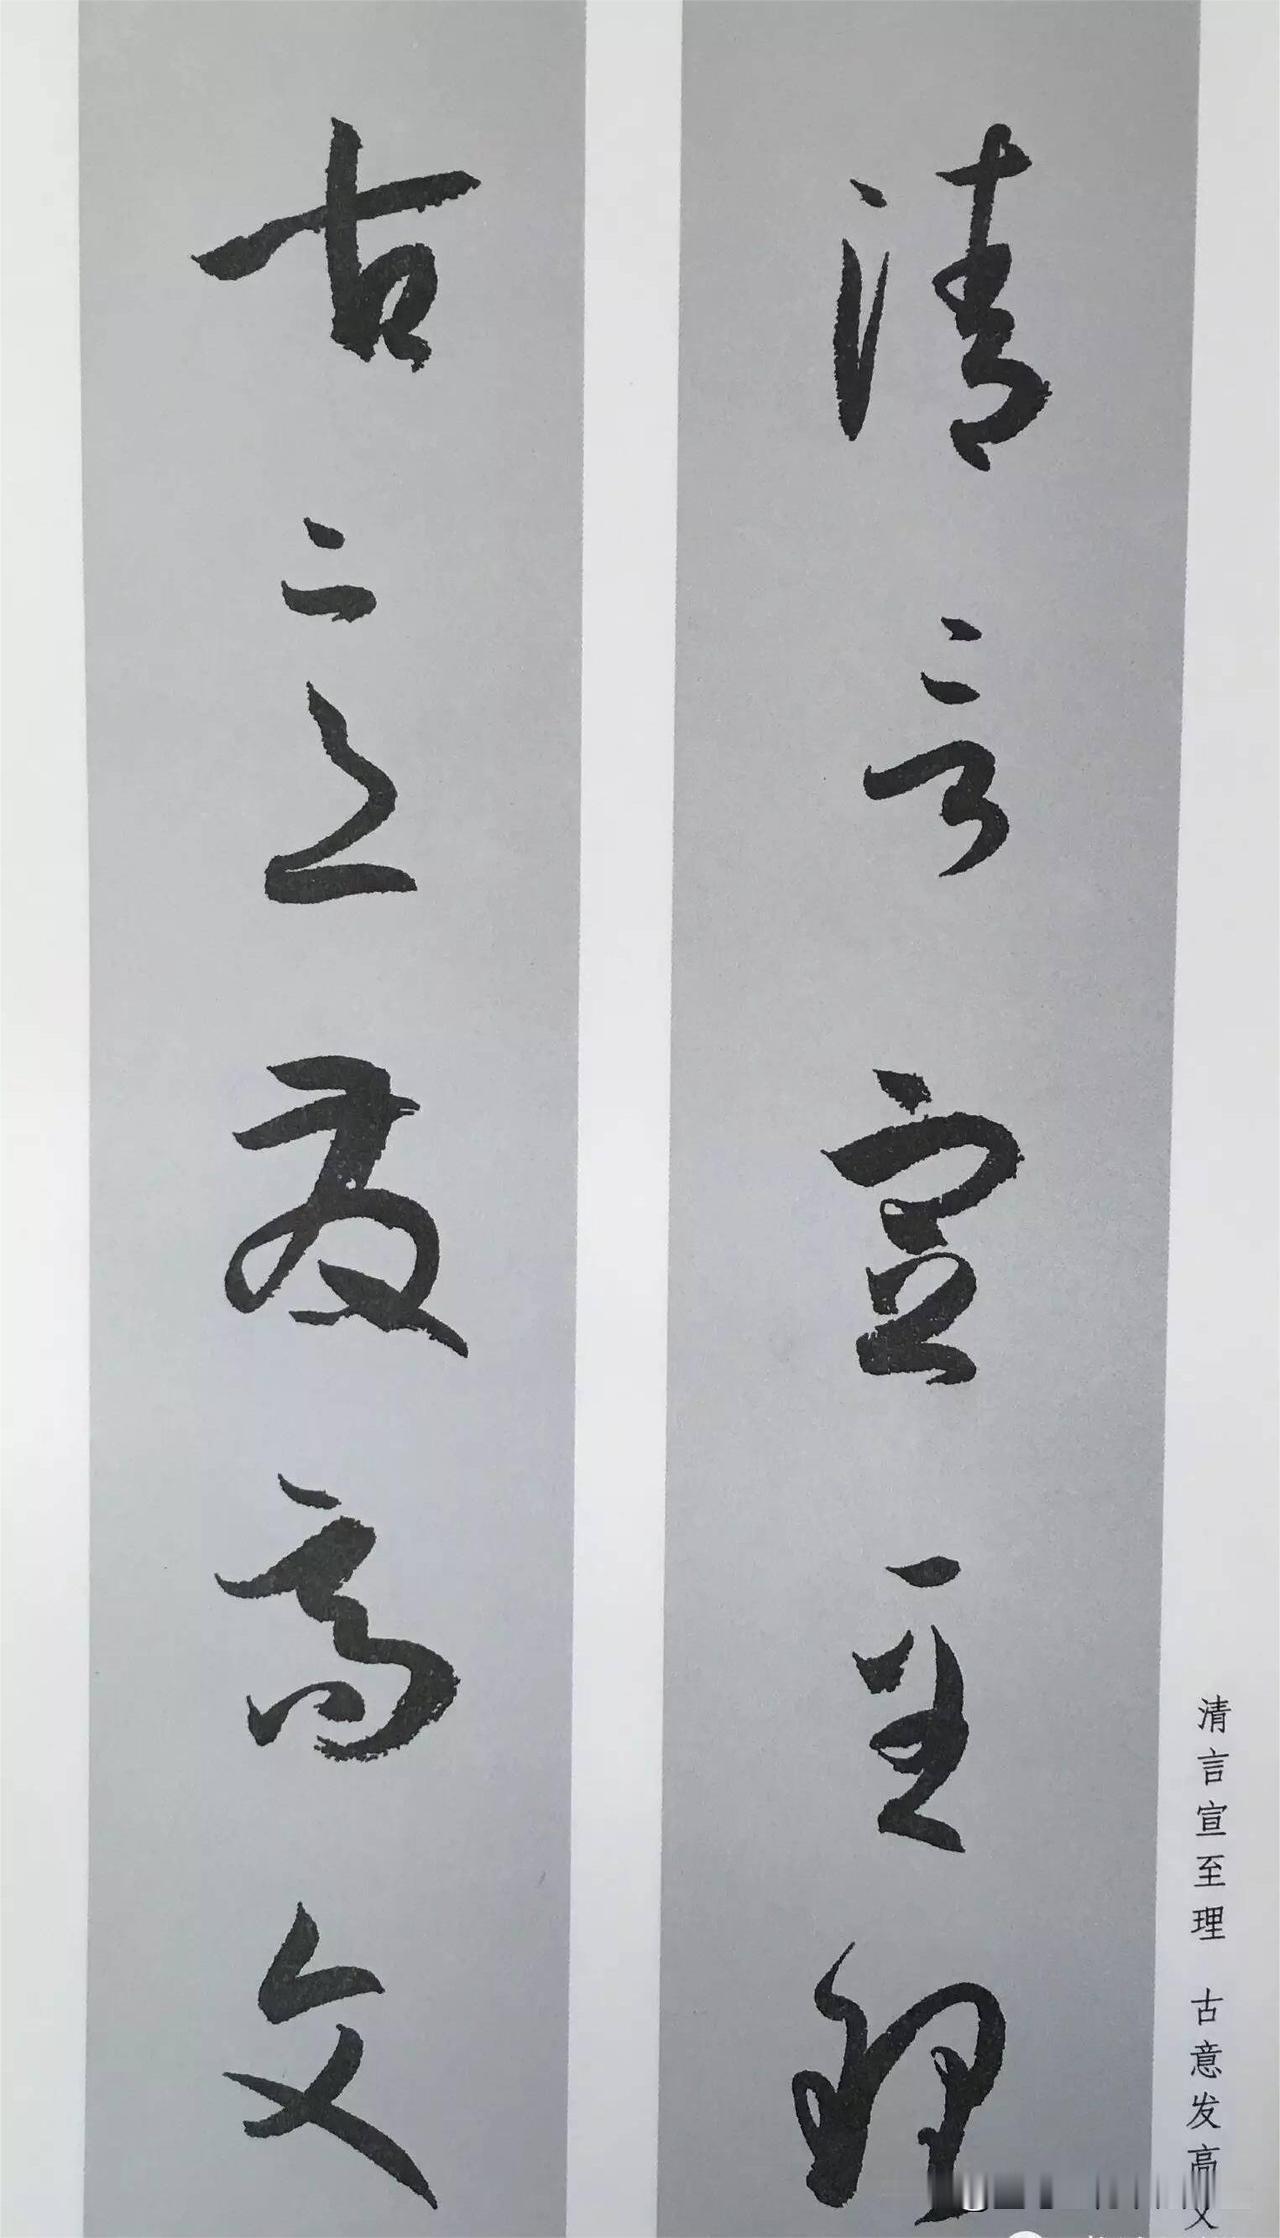 清言宣至理
古意发高文
清言宣至理 古意发高文